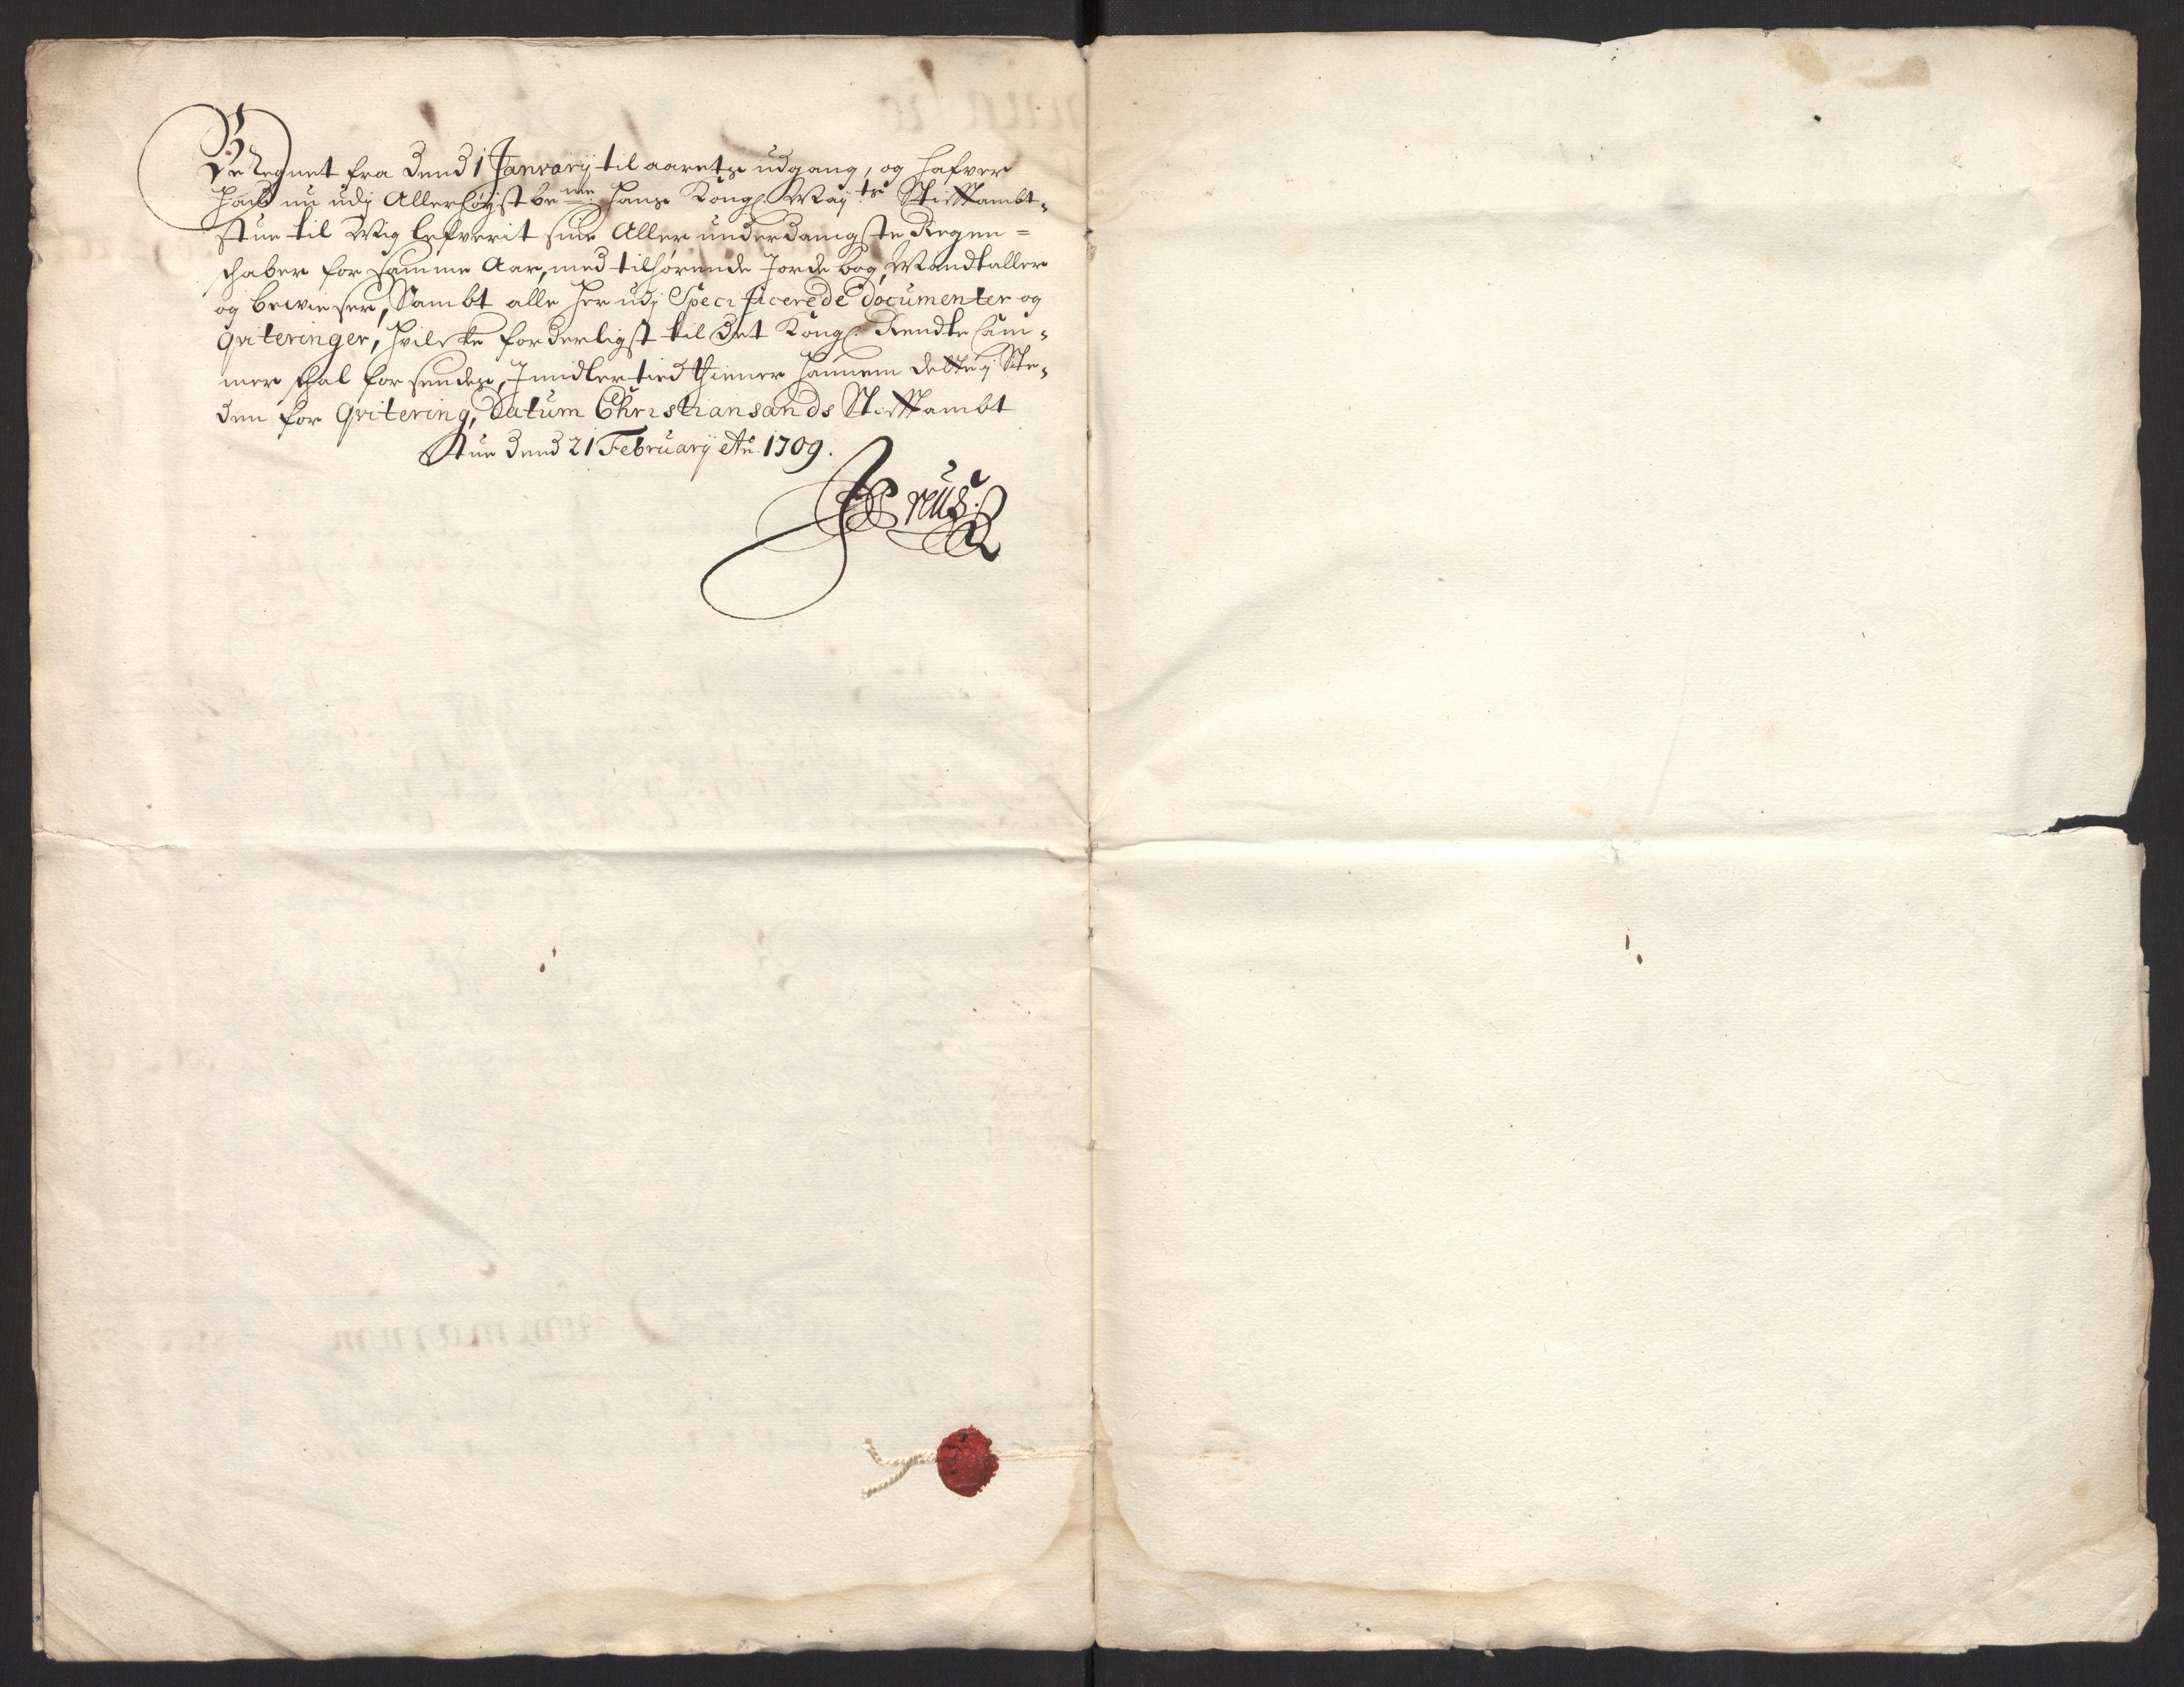 Beregnet fra dend 1 January til aaretz udgang, og hafver
hand nu udj Allerhøyst bemme: hans Kongl: May:ts Stiftambt-
stue til Mig lefverit sine Aller underdanigste Regen=
schaber for samme Aar, med tilhørende Jorde bog, Mandtaller
og bewieser, Sambt alle her udj Specificerede documenter og
Qviteringer, hvilcke forderligst til det Kongl: Rendte Cam-
mer schal forsendes, Jmidlertied thiener hannem dette j Ste-
den for Qvitering, Datum Christiansands Stiftambt
Stue dend 21 February Ao: 1709.